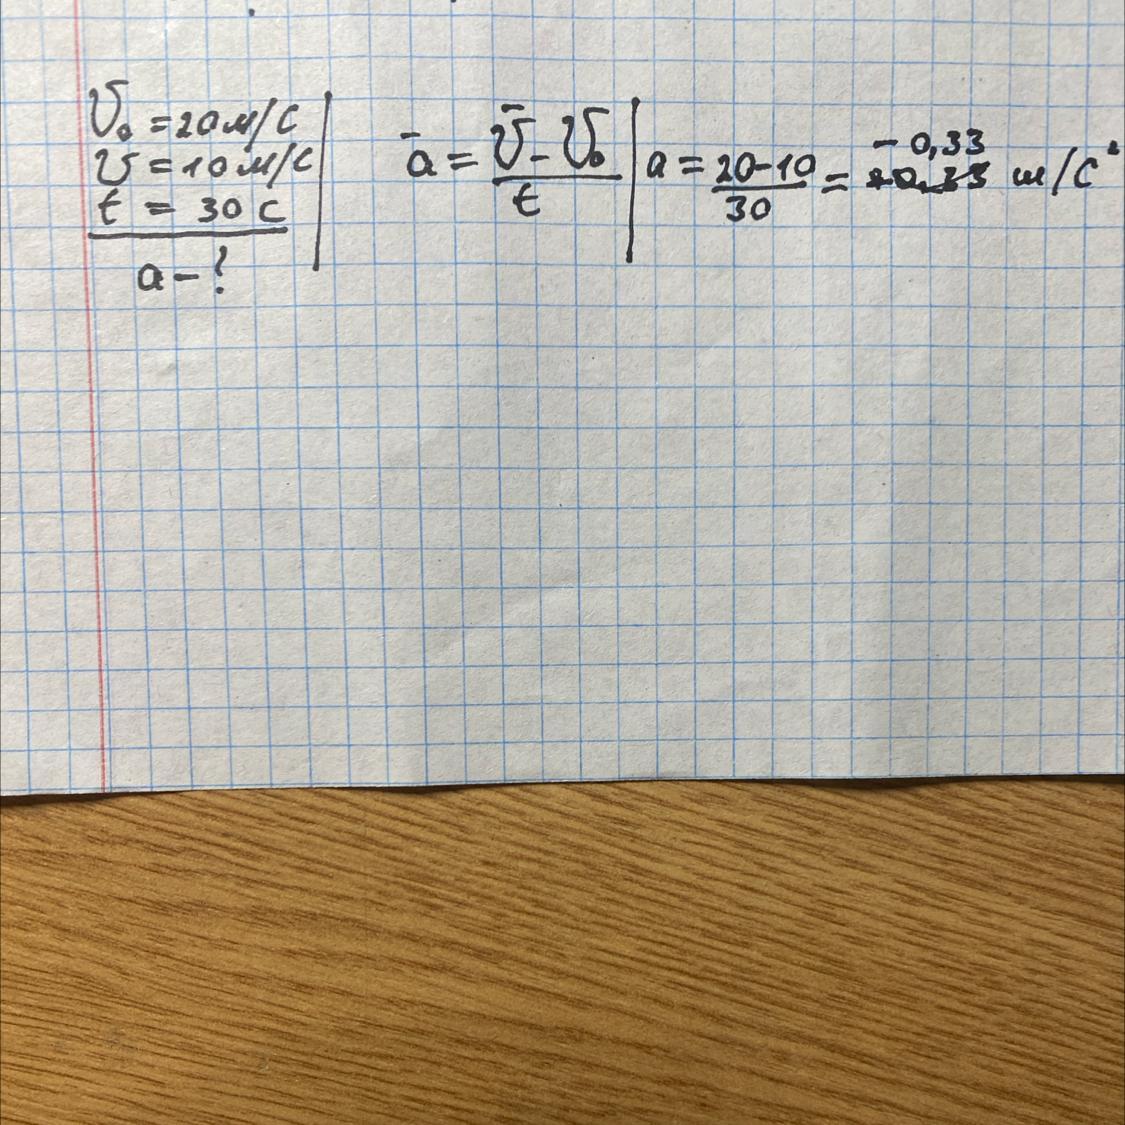 v₀ = 20 м/с
v = 10 м/с
t = 30 с
a - ?
a̅ = (v̅ - v₀)/t
a = (20-10)/30 = -0,33 м/с²